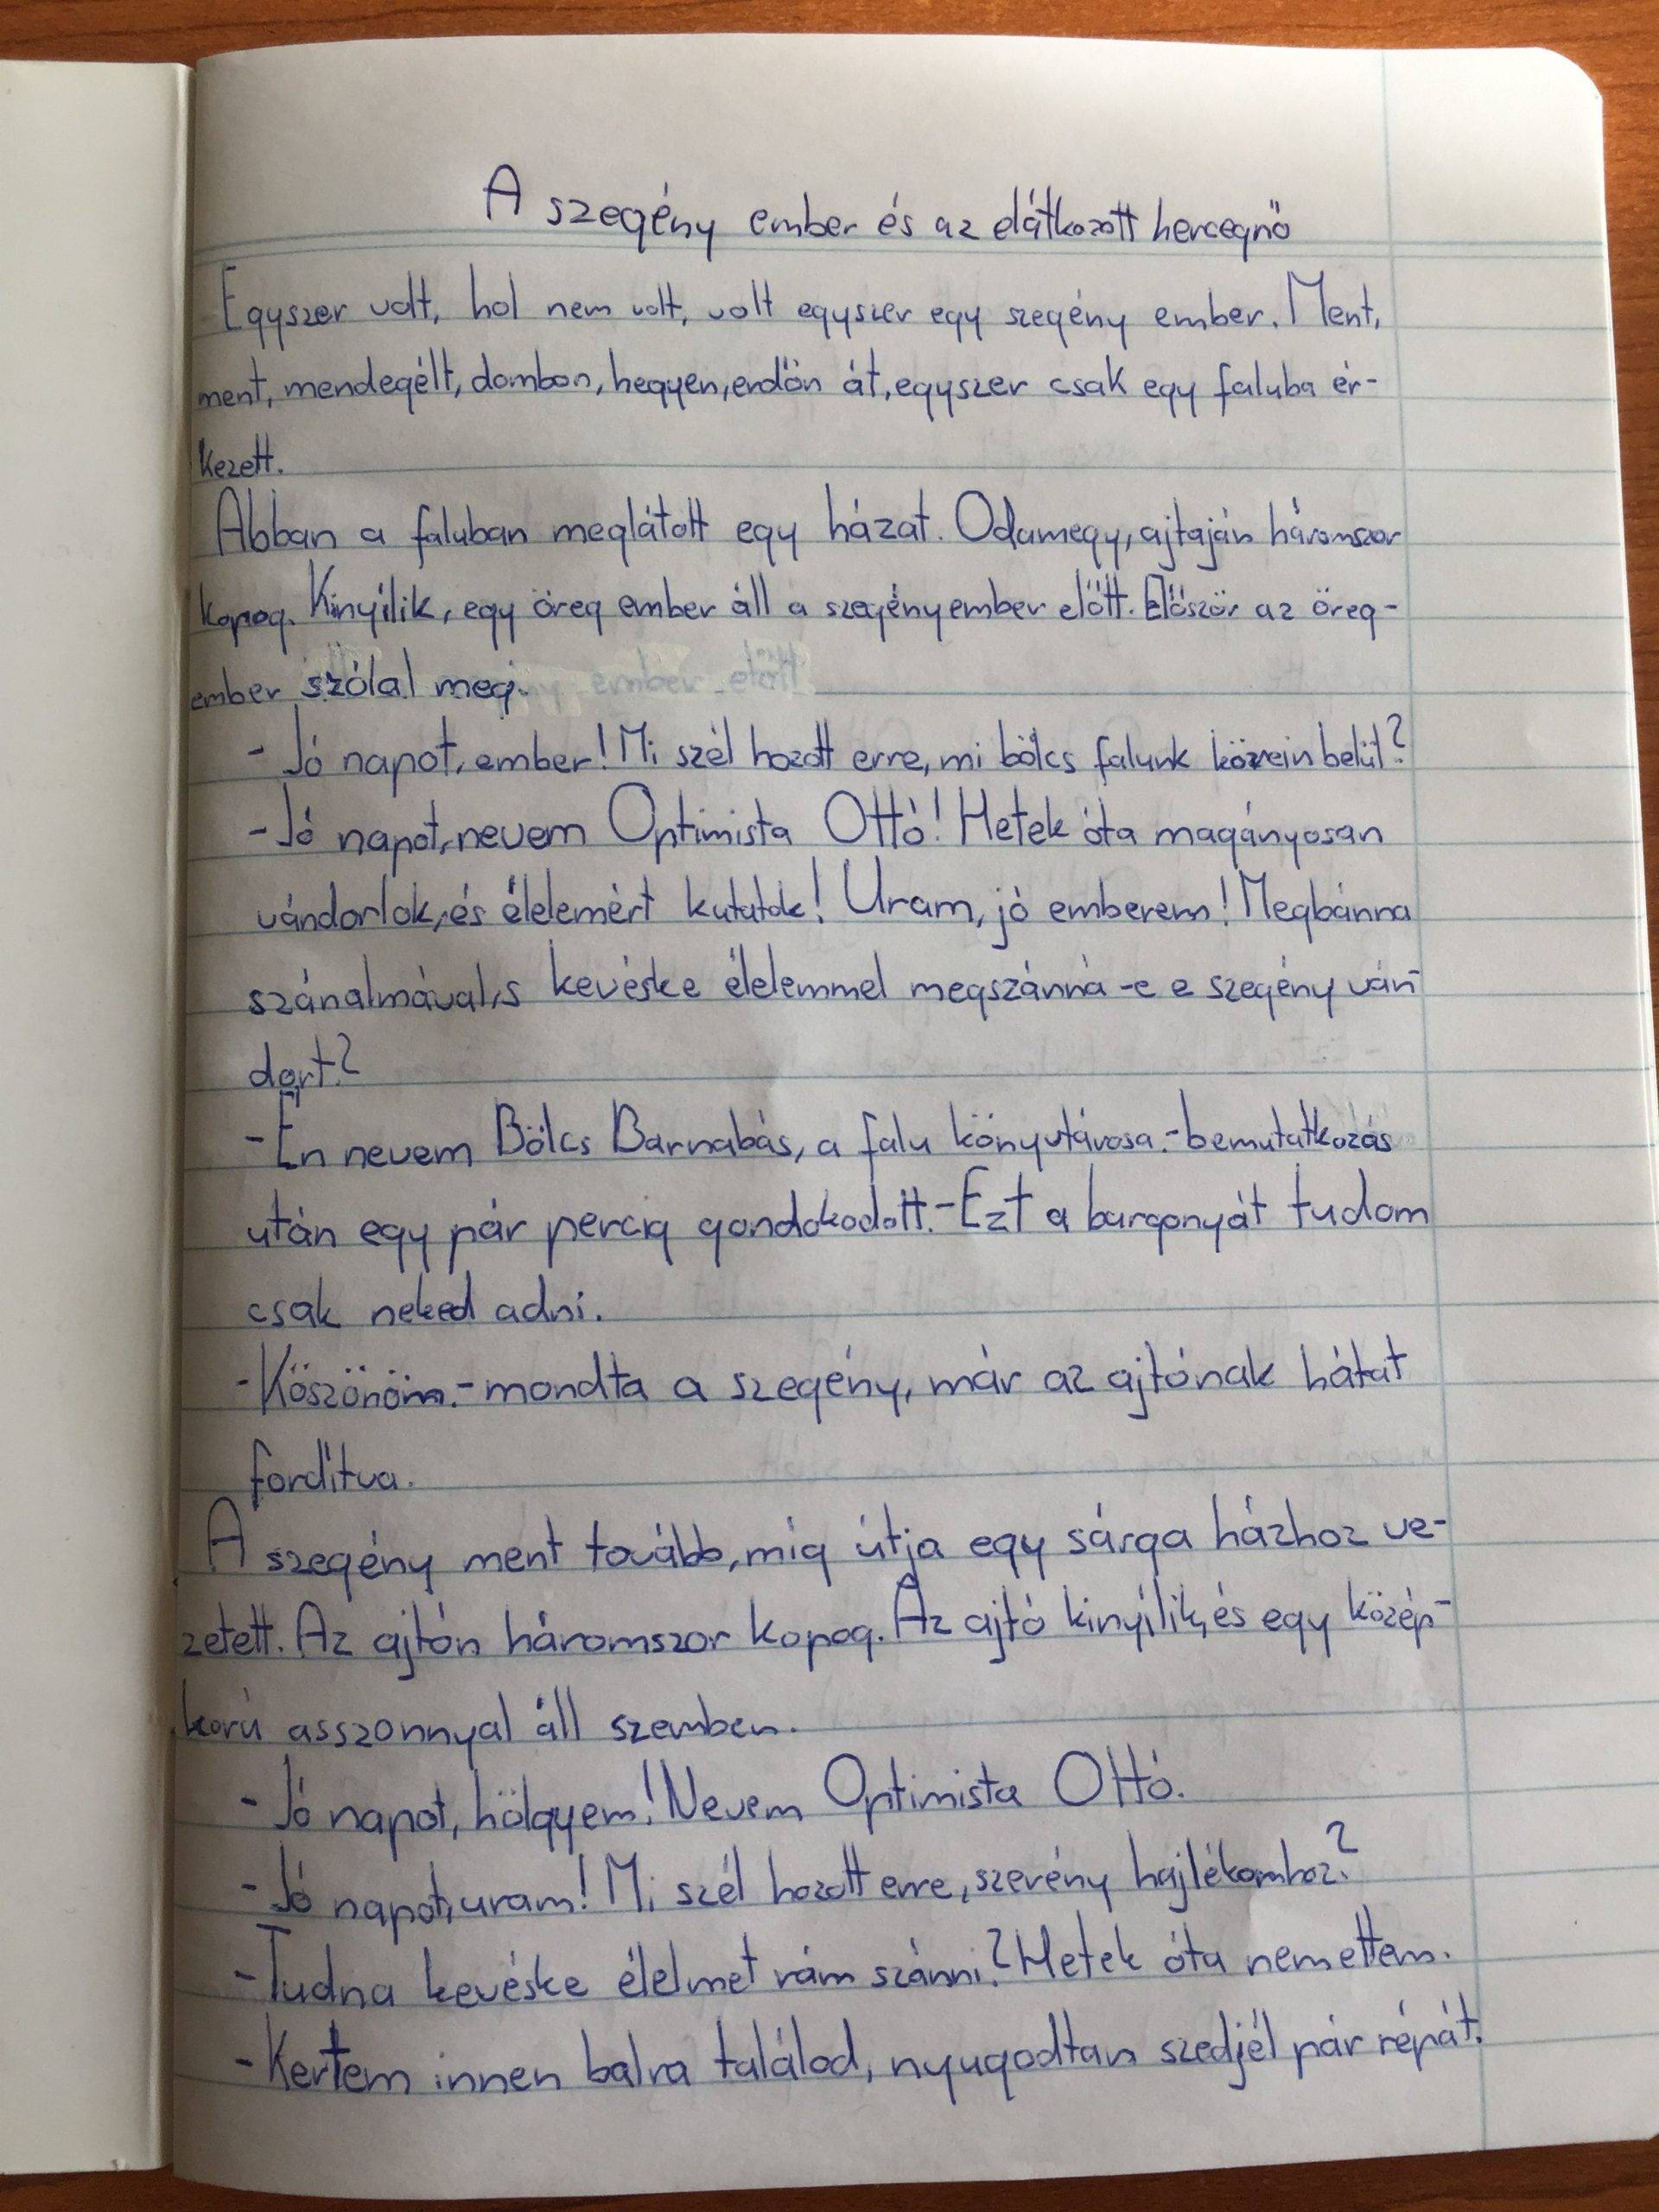 A szegény ember és az elátkozott hercegnő
Egyszer volt, hol nem volt, volt egyszer egy szegény ember. Ment,
ment, mendegélt, dombon, hegyen, erdőn át, egyszer csak egy faluba ér-
kezett.
Abban a faluban meglátott egy házat. Odamegy, ajtaján háromszor
kopog. Kinyílik, egy öreg ember áll a szegény ember előtt. Először az öreg-
ember szólal meg.
- Jó napot, ember! Mi szél hozott erre, mi bölcs falunk körein belül?
- Jó napot, nevem Optimista Ottó! Hetek óta magányosan
vándorlok, és élelemért kutatok! Uram, jó emberem! Megbánna
szánalmával, s kevéske élelemmel megszánná-e e szegény ván-
dort?
- Én nevem Bölcs Barnabás, a falu könyvtárosa. - bemutatkozás
után egy pár percig gondokodott. - Ezt a burgonyát tudom
csak neked adni.
- Köszönöm. - mondta a szegény, már az ajtónak hátat
fordítva.
A szegény ment tovább, míg útja egy sárga házhoz ve-
zetett. Az ajtón háromszor kopog. Az ajtó kinyílik, és egy közép-
korú asszonnyal áll szemben.
- Jó napot, hölgyem! Nevem Optimista Ottó.
- Jó napot, uram! Mi szél hozott erre, szerény hajlékomhoz?
- Tudna kevéske élelmet rám szánni? Hetek óta nem ettem.
- Kertem innen balra találod, nyugodtan szedjél pár répát.